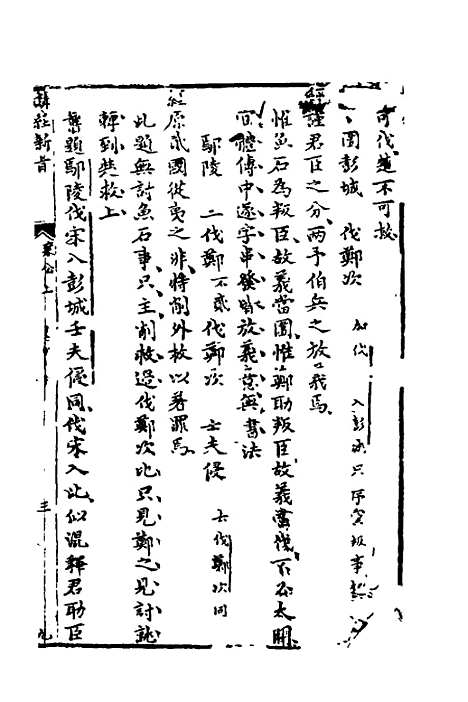 可伐楚不可救
圍彭城 伐鄭次 加伐 入彭城只
謹君臣之分兩予伯兵之放義焉
惟魚石為叛臣故義當圍惟鄭助叛臣故義當伐 太明
宜體傳中逐字串發皆放義意無書法
鄢陵 二伐鄭 不貳伐鄭次 士夫侵 士伐鄭次同
經原貳國從夷之非特削外救以著罪焉
此題無討魚石事只主削救邊伐鄭次比只見鄭之見討
轉到楚救上
舊題鄢陵伐宋入彭城壬夫侵同伐宋入比似混釋君助臣
麟經新旨
襄公上